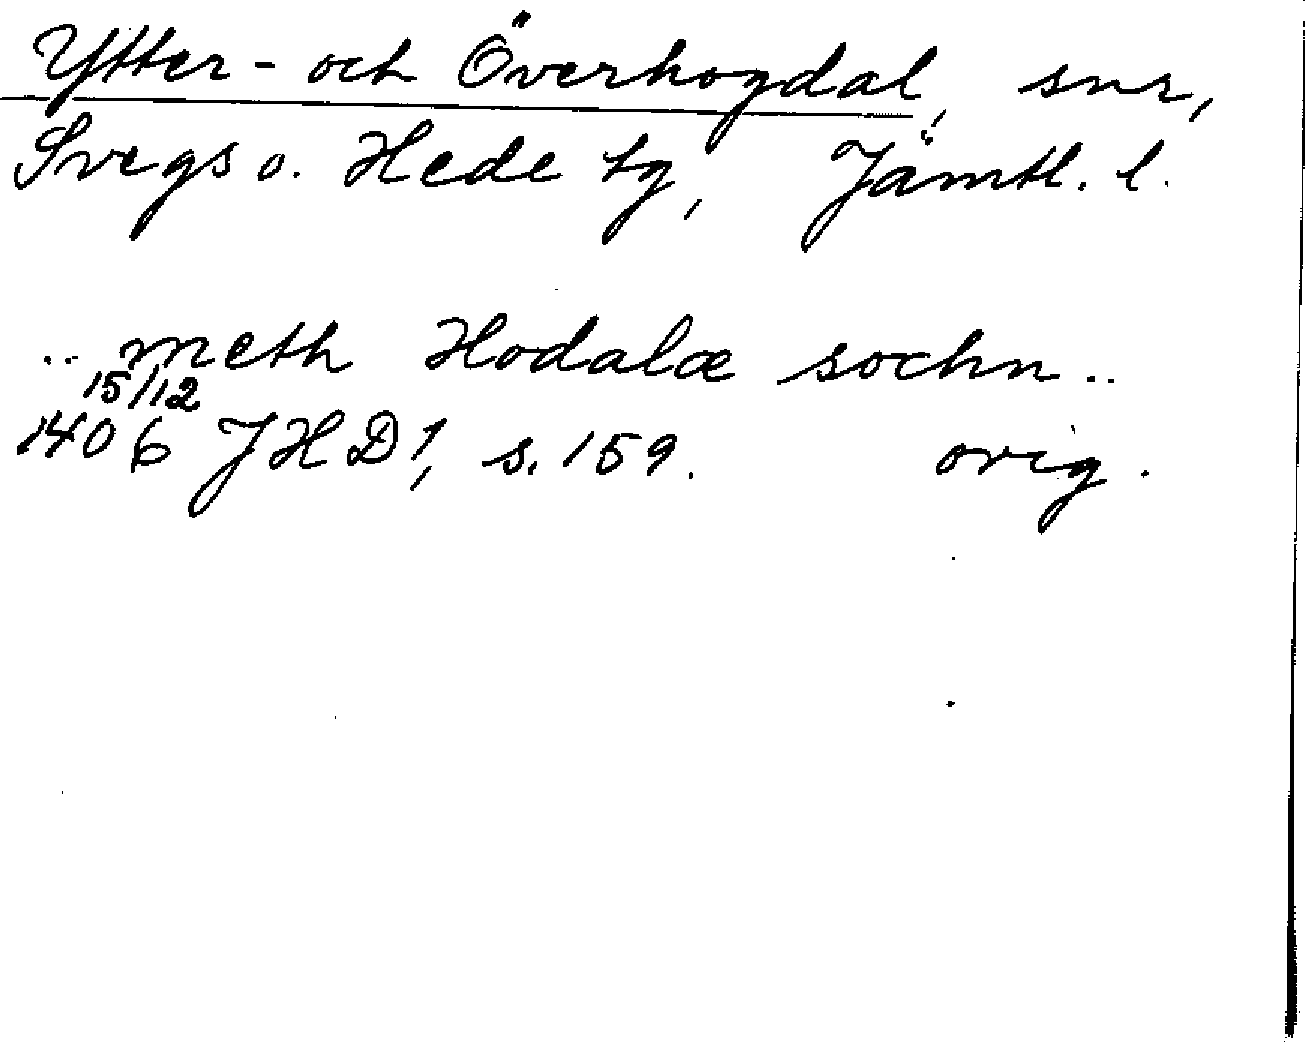 Ytter- och Överhogdal, snr,
Svegs o. Hede tg, Jämtl. l.
.. meth Hodalæ sochn ..
15/12
1406 JHD 1, s. 159. orig.